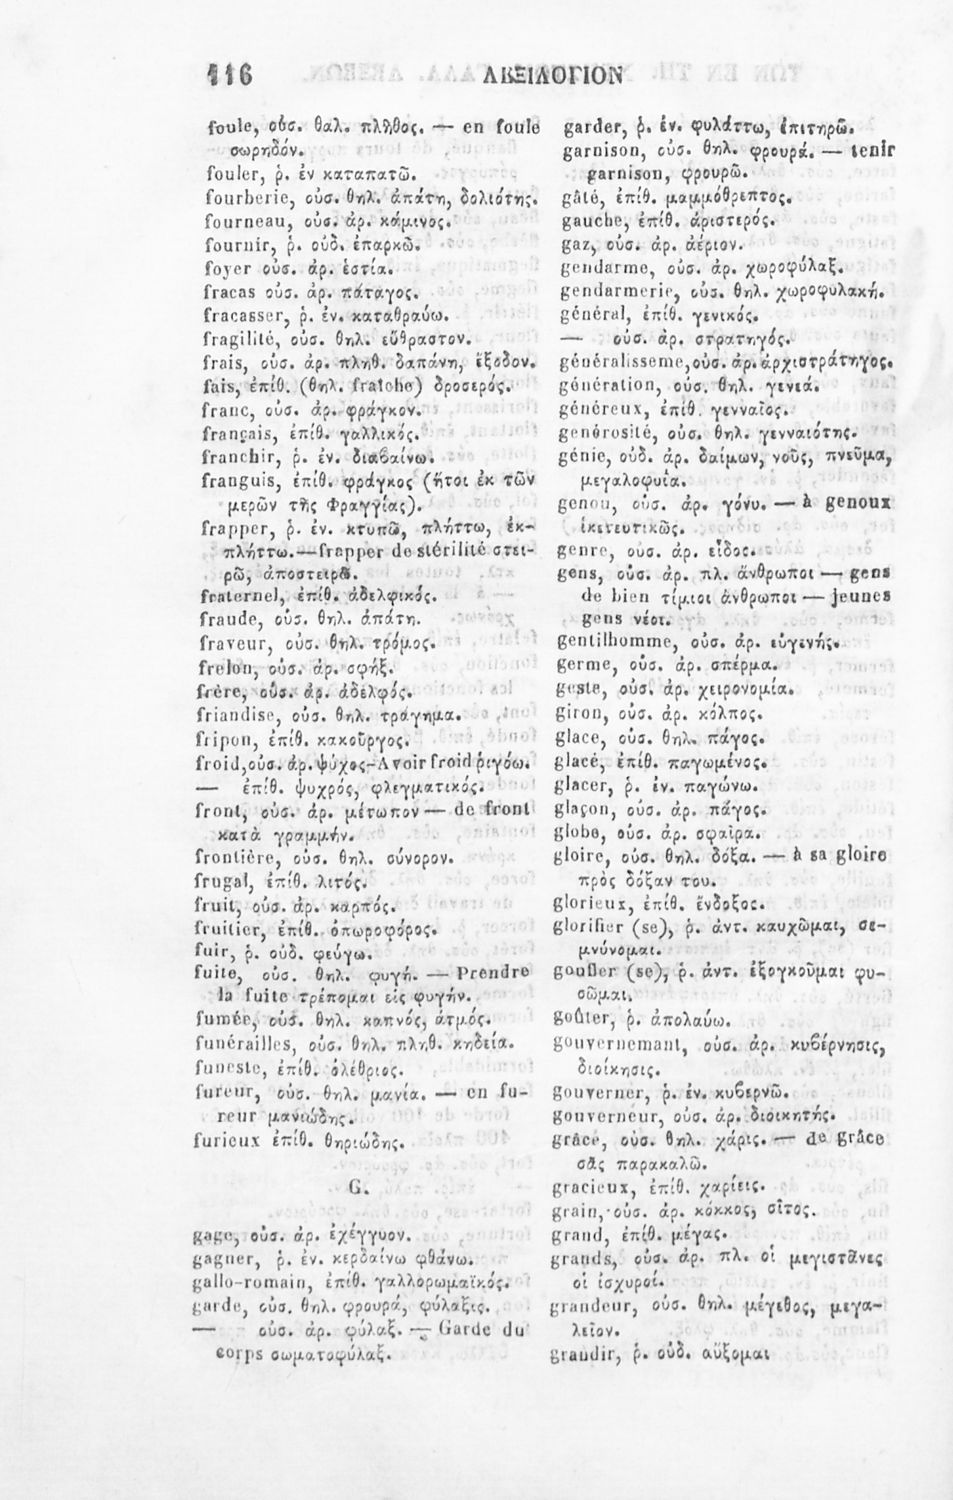 116 ΛΕΞΙΛΟΓΙΟΝ
foule, οὐσ. θαλ. πλῆθος. — en foule
σωρηδόν.
fouler, ῥ. ἐν καταπατῶ.
fourberie, οὐσ. θηλ. ἀπάτη, δολιότης.
fourneau, οὐσ. ἀρ. κάμινος.
fournir, ῥ. οὐδ. ἐπαρκῶ.
foyer οὐσ. ἀρ. ἑστία.
fracas οὐσ. ἀρ. πάταγος.
fracasser, ῥ. ἐν. καταθραύω.
fragilité, οὐσ. θηλ. εὔθραστον.
frais, οὐσ. ἀρ. πληθ. δαπάνη, ἔξοδον.
fais, ἐπίθ. (θηλ. fraîche) δροσερός.
franc, οὐσ. ἀρ. φράγκον.
français, ἐπίθ. γαλλικός.
franchir, ῥ. ἐν. διαβαίνω.
franguis, ἐπίθ. φράγκος (ἤτοι ἐκ τῶν
μερῶν τῆς Φραγγίας).
frapper, ῥ. ἐν. κτυπῶ, πλήττω, ἐκ-
πλήττω.—frapper de stérilité στει-
ρῶ, ἀποστειρῶ.
fraternel, ἐπίθ. ἀδελφικός.
fraude, οὐσ. θηλ. ἀπάτη.
fraveur, οὐσ. θηλ. τρόμος.
frelon, οὐσ. ἀρ. σφήξ.
frère, οὐσ. ἀρ. ἀδελφός.
friandise, οὐσ. θηλ. τράγημα.
fripon, ἐπίθ. κακοῦργος.
froid,οὐσ. ἀρ. ψύχος-Avoir froid ῥιγόω.
— ἐπίθ. ψυχρός, φλεγματικός.
front, οὐσ. ἀρ. μέτωπον — de front
κατὰ γραμμήν.
frontière, οὐσ. θηλ. σύνορον.
frugal, ἐπίθ. λιτός.
fruit, οὐσ. ἀρ. καρπός.
fruitier, ἐπίθ. ὀπωροφόρος.
fuir, ῥ. οὐδ. φεύγω.
fuite, οὐσ. θηλ. φυγή. — Prendre
la fuite τρέπομαι εἰς φυγήν.
fumée, οὐσ. θηλ. καπνός, ἀτμός.
funérailles, οὐσ. θηλ. πληθ. κηδεία.
funeste, ἐπίθ. ὀλέθριος.
fureur, οὐσ. θηλ. μανία. — en fu-
reur μανιώδης.
furieux ἐπίθ. θηριώδης.
G.
gage, οὐσ. ἀρ. ἐχέγγυον.
gagner, ῥ. ἐν. κερδαίνω φθάνω.
gallo-romain, ἐπίθ. γαλλορωμαϊκός.
garde, οὐσ. θηλ. φρουρά, φύλαξις.
— οὐσ. ἀρ. φύλαξ. — Garde du
corps σωματοφύλαξ.
garder, ῥ. ἐν. φυλάττω, ἐπιτηρῶ.
garnison, οὐσ. θηλ. φρουρά. — tenir
garnison, φρουρῶ.
gâté, ἐπίθ. μαμμόθρεπτος.
gauche, ἐπίθ. ἀριστερός.
gaz, οὐσ. ἀρ. ἀέριον.
gendarme, οὐσ. ἀρ. χωροφύλαξ.
gendarmerie, οὐσ. θηλ. χωροφυλακή.
général, ἐπίθ. γενικός.
— οὐσ. ἀρ. στρατηγός.
généralisseme,οὐσ. ἀρ. ἀρχιστράτηγος.
génération, οὐσ. θηλ. γενιά.
généreux, ἐπίθ. γενναῖος.
genérosité, οὐσ. θηλ. γενναιότης.
génie, οὐδ. ἀρ. δαίμων, νοῦς, πνεῦμα,
μεγαλοφυΐα.
genou, οὐσ. ἀρ. γόνυ. — à genoux
ἱκετευτικῶς.
genre, οὐσ. ἀρ. εἶδος.
gens, οὐσ. ἀρ. πλ. ἄνθρωποι — gens
de bien τίμιοι ἄνθρωποι — jeunes
gens νέοι.
gentilhomme, οὐσ. ἀρ. εὐγενής.
germe, οὐσ. ἀρ. σπέρμα.
geste, οὐσ. ἀρ. χειρονομία.
giron, οὐσ. ἀρ. κόλπος.
glace, οὐσ. θηλ. πάγος.
glacé, ἐπίθ. παγωμένος.
glacer, ῥ. ἐν. παγώνω.
glaçon, οὐσ. ἀρ. πάγος.
globe, οὐσ. ἀρ. σφαῖρα.
gloire, οὐσ. θηλ. δόξα. — à sa gloire
πρὸς δόξαν του.
glorieux, ἐπίθ. ἔνδοξος.
glorifier (se), ῥ. ἀντ. καυχῶμαι, σε-
μνύνομαι.
gonfler (se), ῥ. ἀντ. ἐξογκοῦμαι φυ-
σῶμαι.
goûter, ῥ. ἀπολαύω.
gouvernemant, οὐσ. ἀρ. κυβέρνησις,
διοίκησις.
gouverner, ῥ. ἐν. κυβερνῶ.
gouverneur, οὐσ. ἀρ. διοικητής.
grâce, οὐσ. θηλ. χάρις. — de grâce
σᾶς παρακαλῶ.
gracieux, ἐπίθ. χαρίεις.
grain, οὐσ. ἀρ. κόκκος, σῖτος.
grand, ἐπίθ. μέγας.
grands, οὐσ. ἀρ. πλ. οἱ μεγιστᾶνες
οἱ ἰσχυροί.
grandeur, οὐσ. θηλ. μέγεθος, μεγα-
λεῖον.
grandir, ῥ. οὐδ. αὔξομαι